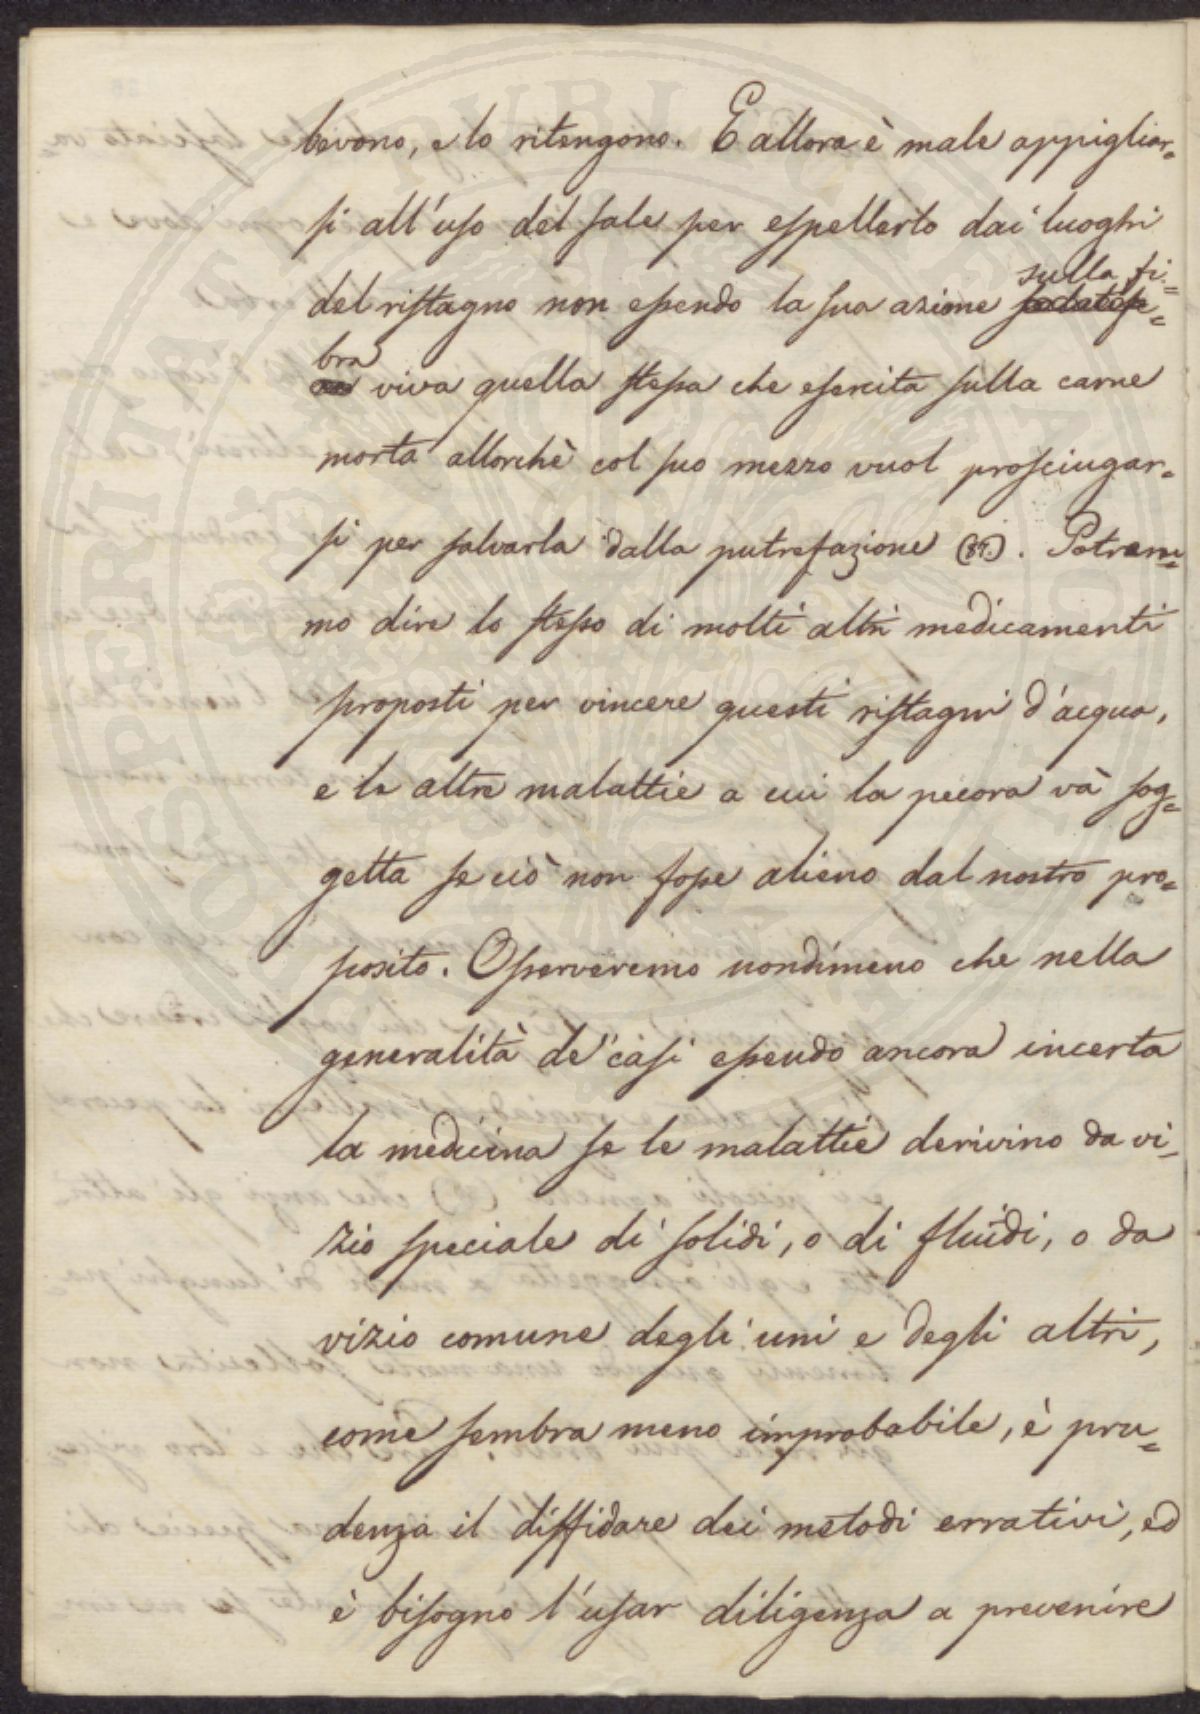 bevono, e lo ritengono. E allora è male appigliar=
si all'uso del sale per espellerlo dai luoghi
del ristagno non essendo la sua azione sulla fi=
bra viva quella stessa che esercita sulla carne
morta allorchè col suo mezzo vuol prosciugar=
si per salvarla dalla putrefazione (87). Potrem=
mo dire lo stesso di molti altri medicamenti
proposti per vincere questi ristagni d'acqua,
e le altre malattie a cui la pecora và sog=
getta se ciò non fosse alieno dal nostro pro=
posito. Osserveremo nondimeno che nella
generalità de' casi essendo ancora incerta
la medicina se le malattie derivino da vi=
zio speciale di solidi, o di fluidi, o da
vizio comune degli uni e degli altri,
come sembra meno improbabile, è pru=
denza il diffidare dei metodi errativi, ed
è bisogno l'usar diligenza a prevenire